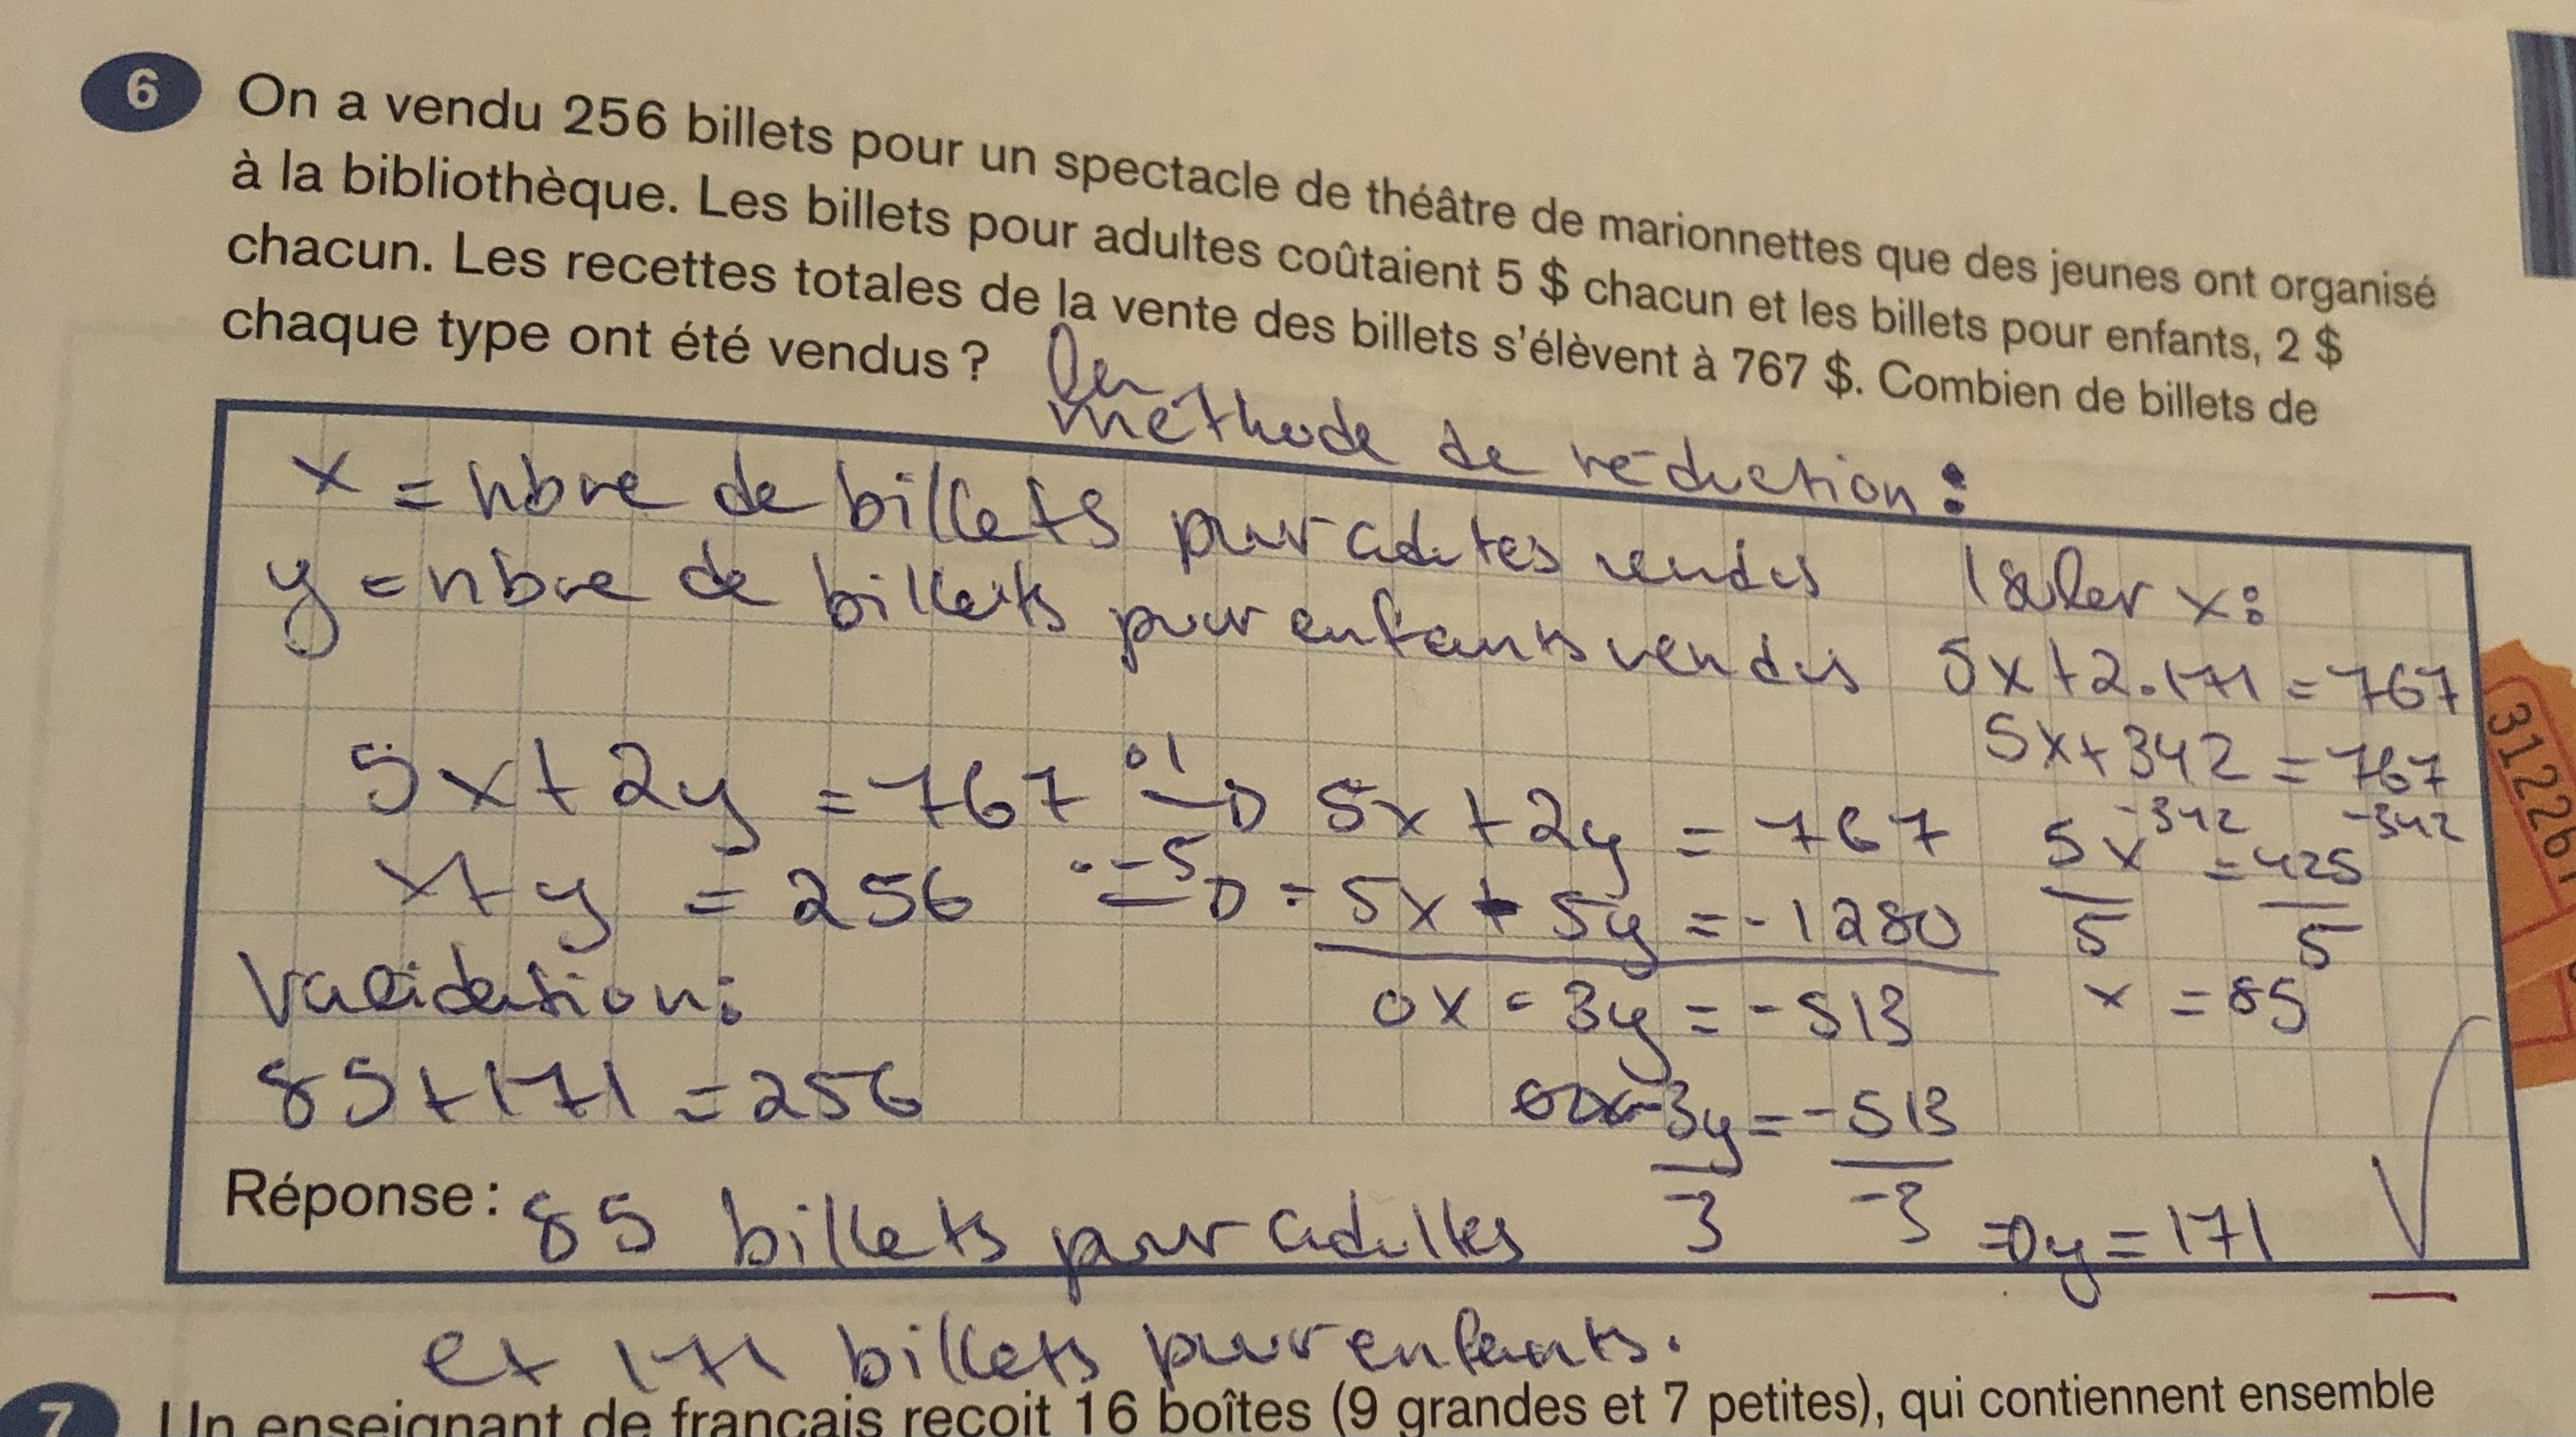 6 On a vendu 256 billets pour un spectacle de théâtre de marionnettes que des jeunes ont organisé
à la bibliothèque. Les billets pour adultes coûtaient 5 $ chacun et les billets pour enfants, 2 $
chacun. Les recettes totales de la vente des billets s'élèvent à 767 $. Combien de billets de
chaque type ont été vendus ?
méthode de réduction :
x = nbre de billets pour adultes vendus
y = nbre de billets pour enfants vendus
5x + 2y = 767 ·1 → 5x + 2y = 767
x + y = 256 ·-5 → -5x - 5y = -1280
0x - 3y = -513
-3y = -513
-3 -3 => y = 171
Isoler x :
5x + 2·171 = 767
5x + 342 = 767
-342 -342
5x = 425
5 5
x = 85
Validation :
85 + 171 = 256
Réponse : 85 billets pour adultes
et 171 billets pour enfants.
312261
7 Un enseignant de français reçoit 16 boîtes (9 grandes et 7 petites), qui contiennent ensemble